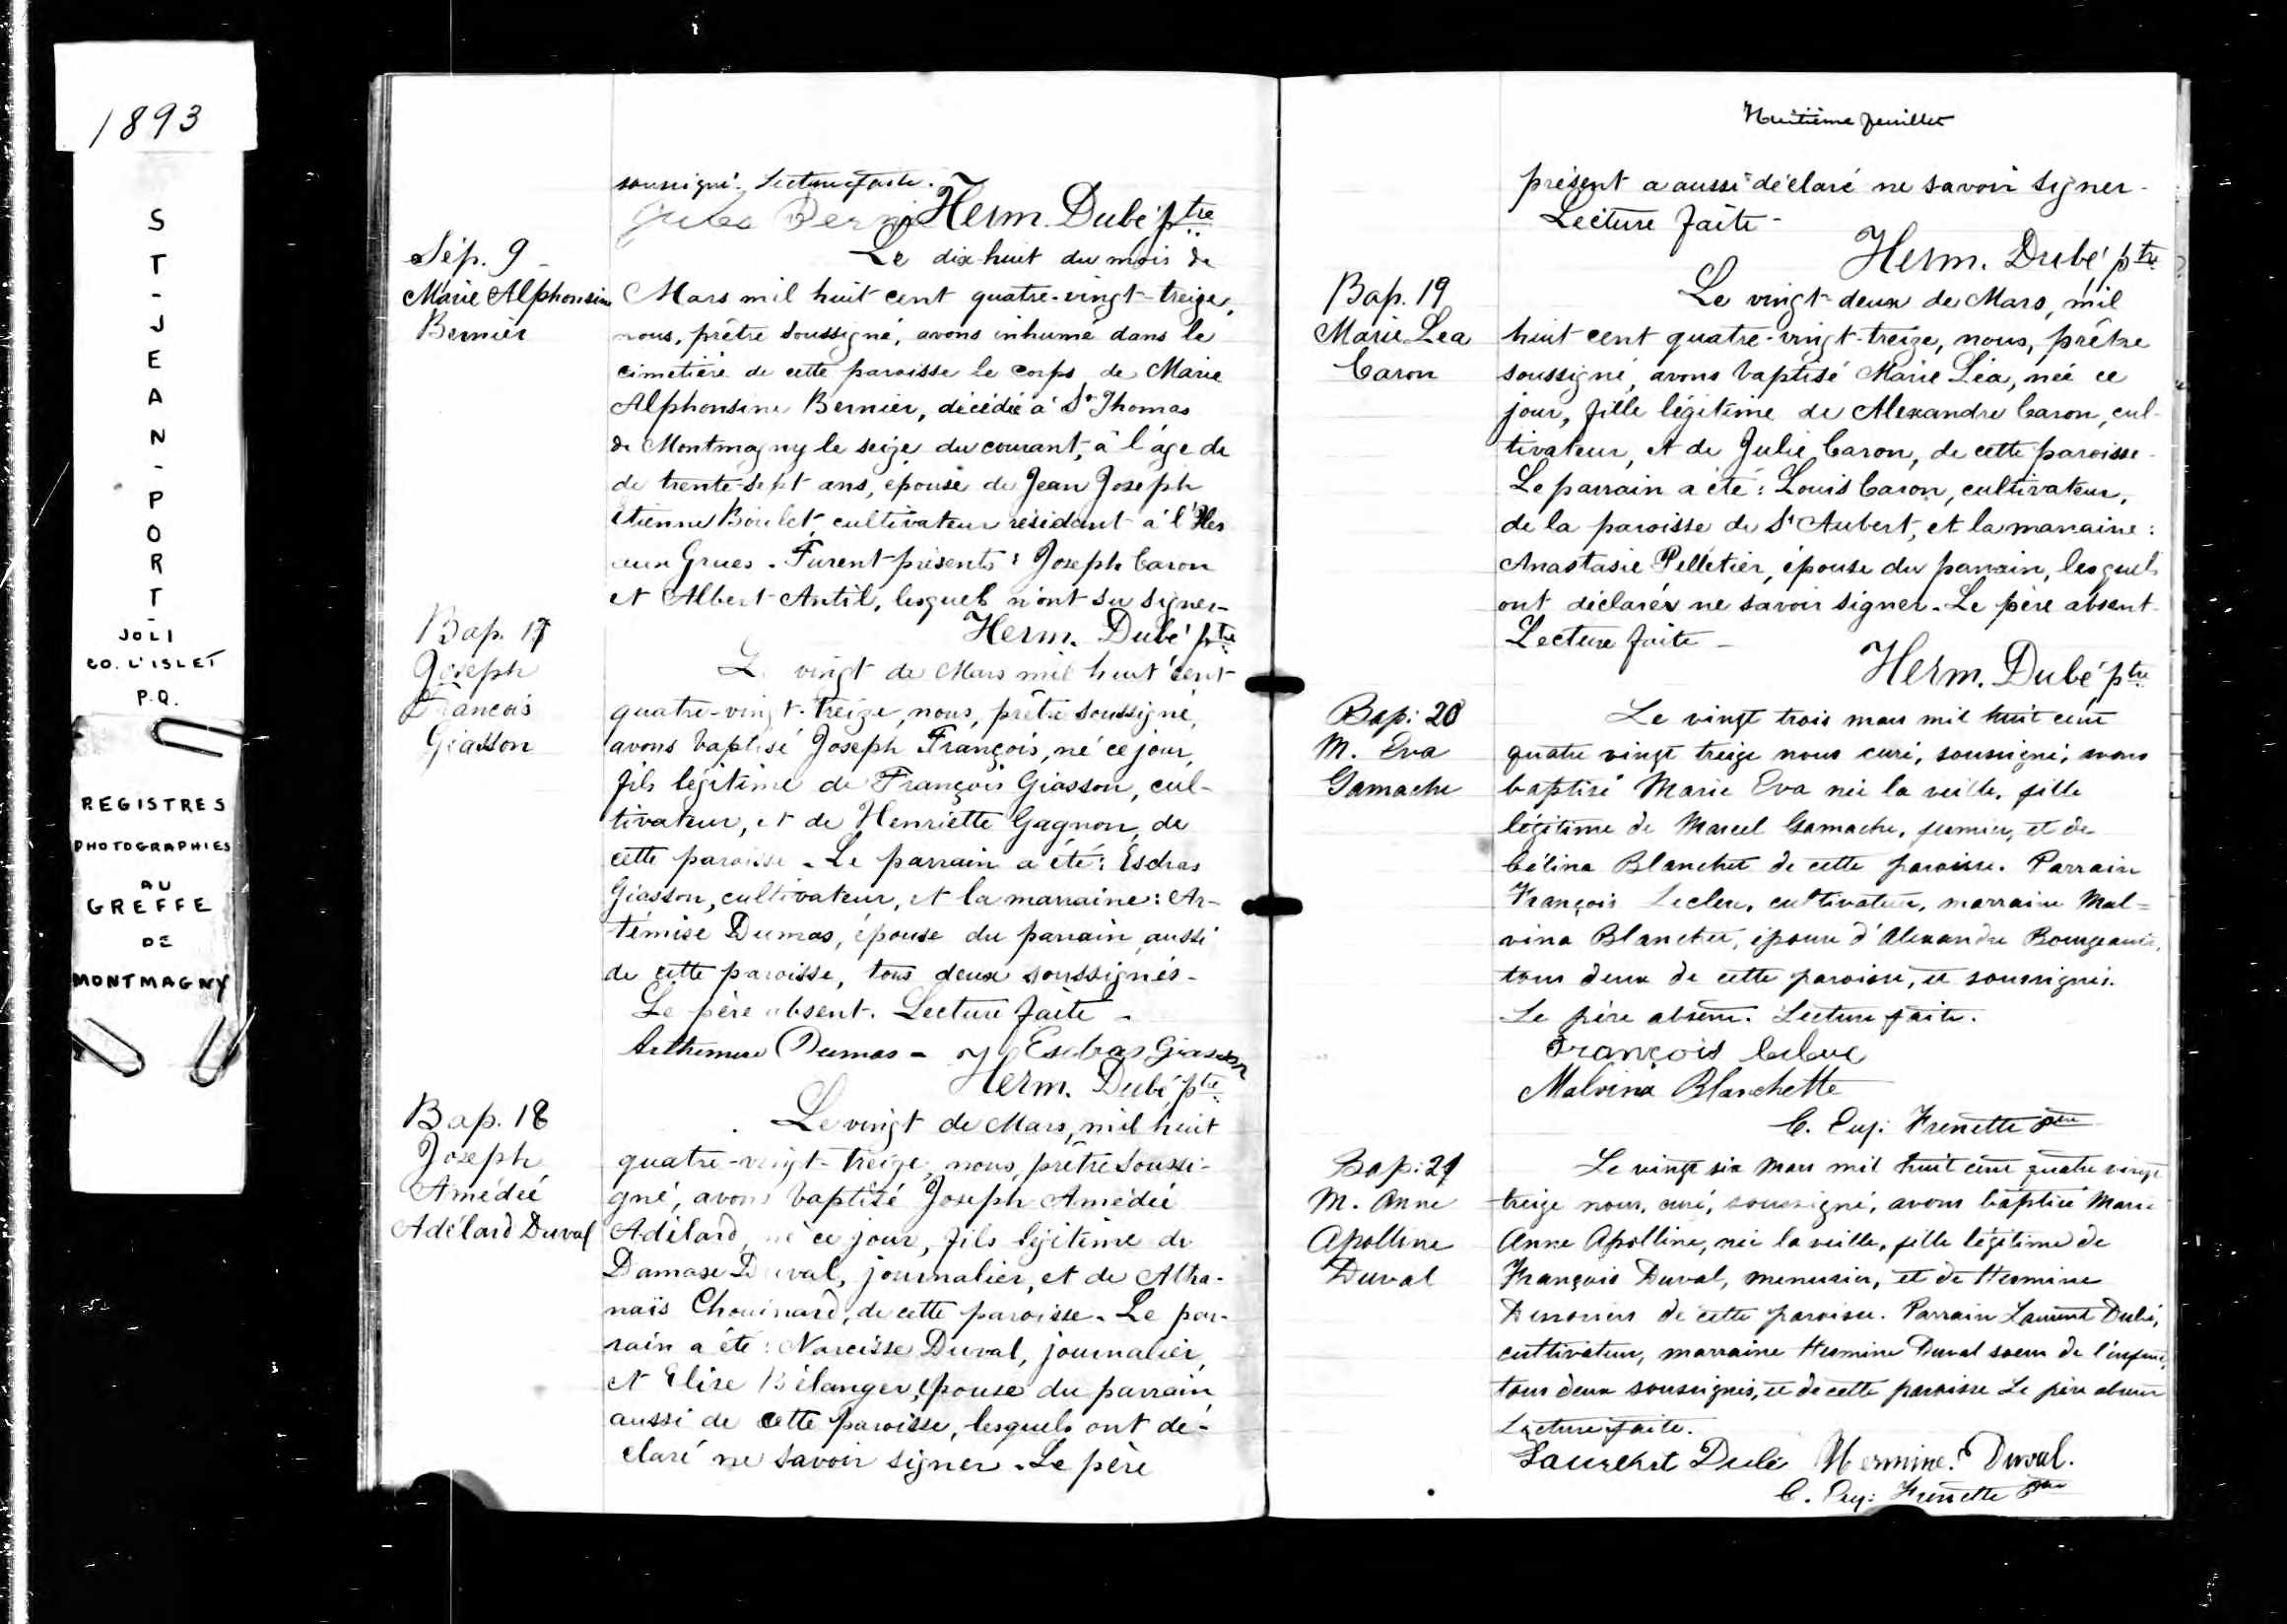 1893
S
T
-
J
E
A
N
-
P
O
R
T
-
JOLI
CO. L'ISLET
P.Q.
REGISTRES
PHOTOGRAPHIES
AU
GREFFE
DE
MONTMAGNY
soussigné. Lecture faite.
Jules Herm. Dubé ptre
Sép. 9
Marie Alphonsine
Bernier
Le dix-huit du mois de
Mars mil huit cent quatre-vingt-treize,
nous, prêtre soussigné, avons inhumé dans le
cimetière de cette paroisse le corps de Marie
Alphonsine Bernier, décédée à St Thomas
de Montmagny le seize du courant, à l'âge de
de trente-sept ans, épouse de Jean Joseph
Etienne Boulet, cultivateur résidant à l'Iles
aux Grues. Furent présents: Joseph Caron
et Albert Antil, lesquels n'ont su signer.
Herm. Dubé ptre
Bap. 17
Joseph
François
Giasson
Le vingt de Mars mil huit cent
quatre-vingt-treize, nous, prêtre soussigné,
avons baptisé Joseph François, né ce jour,
fils légitime de François Giasson, cul-
tivateur, et de Henriette Gagnon, de
cette paroisse. Le parrain a été: Esdras
Giasson, cultivateur, et la marraine: Ar-
témise Dumas, épouse du parrain, aussi
de cette paroisse, tous deux soussignés.
Le père absent. Lecture faite.
Arthemise Dumas - Esdras Giasson
Herm. Dubé ptre
Bap. 18
Joseph
Amédée
Adélard Duval
Le vingt de Mars, mil huit
quatre-vingt-treize, nous, prêtre soussi-
gné, avons baptisé Joseph Amédée
Adélard, né ce jour, fils légitime de
Damase Duval, journalier, et de Atha-
naïs Chouinard, de cette paroisse. Le par-
rain a été: Narcisse Duval, journalier,
et Elise Bélanger, épouse du parrain,
aussi de cette paroisse, lesquels ont dé-
claré ne savoir signer. Le père
Huitième feuillet
présent a aussi déclaré ne savoir signer.
Lecture faite -
Herm. Dubé ptre
Bap. 19
Marie Lea
Caron
Le vingt-deux de Mars, mil
huit cent quatre-vingt-treize, nous, prêtre
soussigné, avons baptisé Marie Léa, née ce
jour, fille légitime de Alexandre Caron, cul-
tivateur, et de Julie Caron, de cette paroisse.
Le parrain a été: Louis Caron, cultivateur,
de la paroisse de St Aubert, et la marraine:
Anastasie Pelletier, épouse du parrain, lesquels
ont déclarés ne savoir signer. Le père absent.
Lecture faite -
Herm. Dubé ptre
Bap: 20
M. Eva
Gamache
Le vingt trois mars mil huit cent
quatre vingt treize nous curé, soussigné, avons
baptisé Marie Eva née la veille, fille
légitime de Marcel Gamache, fermier, et de
Célina Blanchet de cette paroisse. Parrain
François Leclerc, cultivateur, marraine Mal=
vina Blanchet, épouse d'Alexandre Bourgeault,
tous deux de cette paroisse, et soussignés.
Le père absent. Lecture faite.
François Leclerc
Malvina Blanchette
C. Eug: Frenette ptre
Bap: 21
M. Anne
Apolline
Duval
Le vingt six Mars mil huit cent quatre vingt
treize nous, curé, soussigné, avons baptisé Marie
Anne Apolline, née la veille, fille légitime de
François Duval, menuisier, et de Hermine
de cette paroisse. Parrain Laurent Dubé,
cultivateur, marraine Hermine Duval soeur de l'enfant,
tous deux soussignés, et de cette paroisse Le père absent
Lecture faite.
Laurent Dubé Hermine Duval.
C. Eug: Frenette ptre